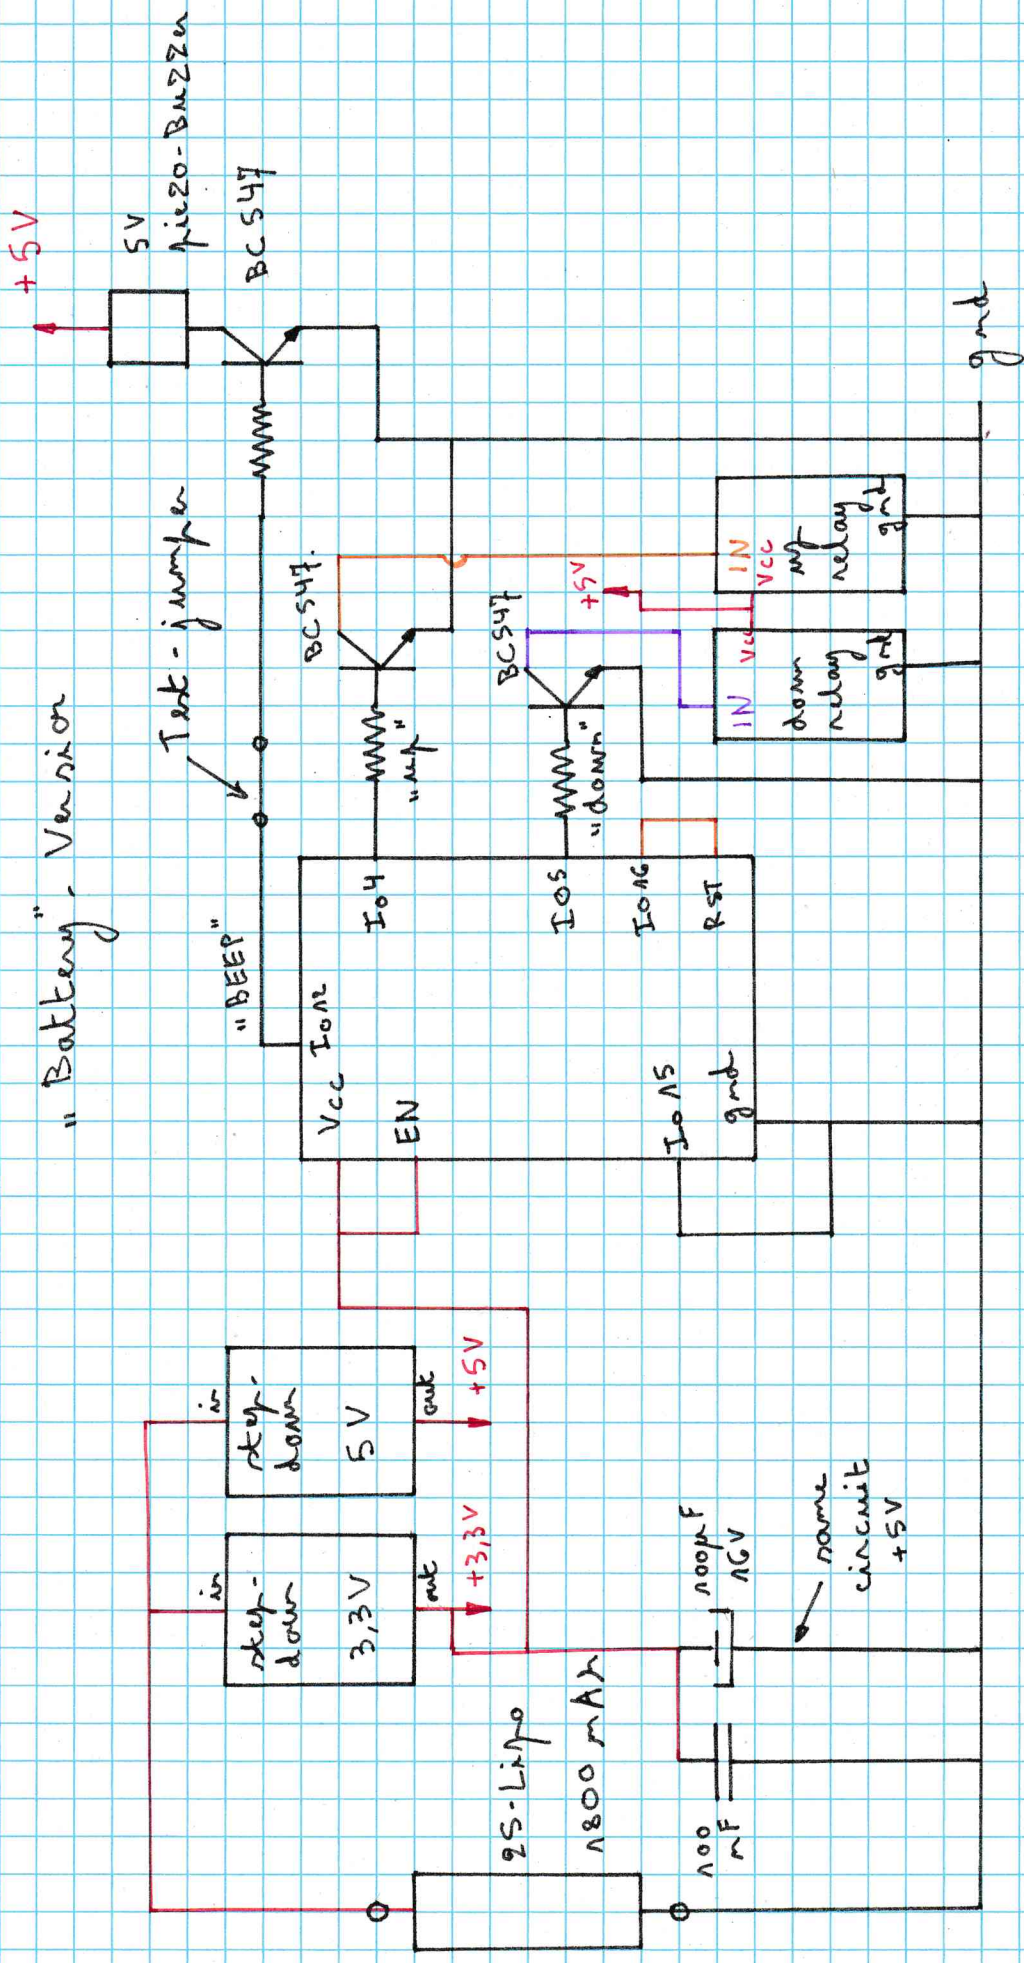 "Battery" - Version
+5V
5V
piezo-Buzzer
BC547
Test-jumper
"BEEP"
BC547.
"up"
BC547
"down"
+5V
IN
Vcc
up
relay
gnd
IN
Vcc
down
relay
gnd
gnd
Vcc
EN
Io12
Io4
IO5
Io16
RST
Io15
gnd
in
step-
down
5V
out
+5V
in
step-
down
3,3V
out
+3,3V
2S-Lipo
1800 mAh
100
nF
100µF
16V
same
circuit
+5V